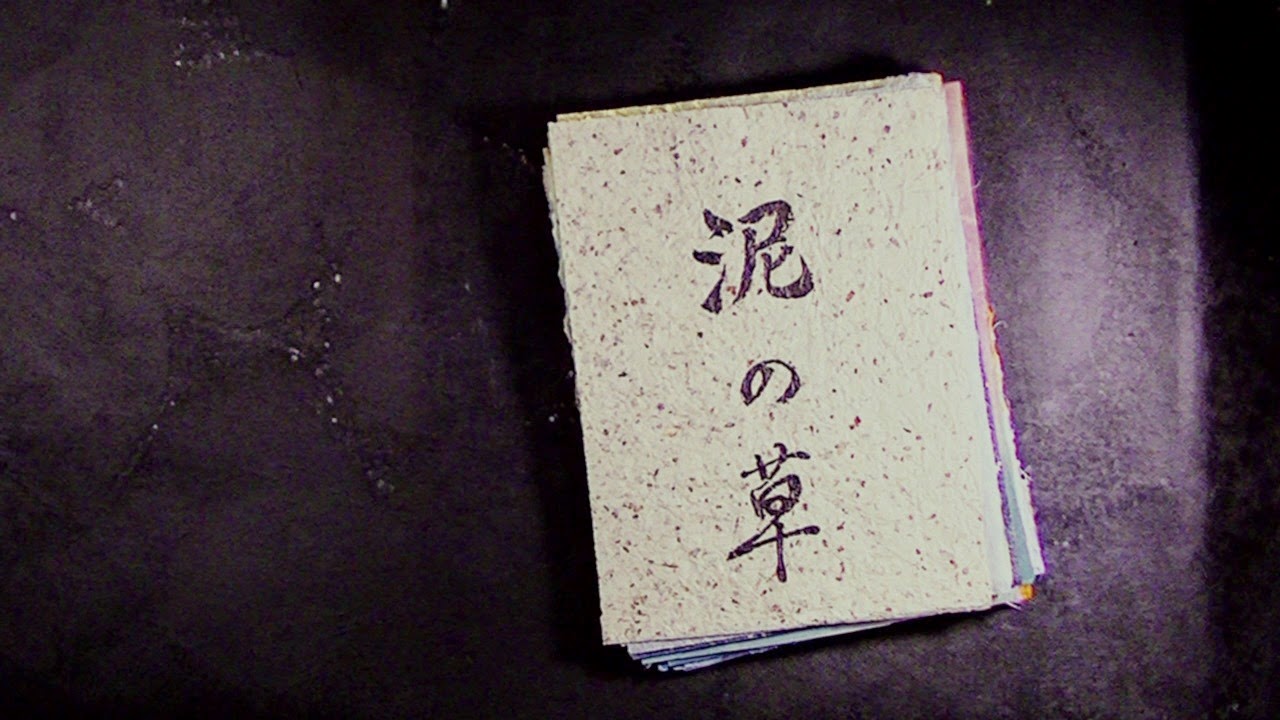 泥の草